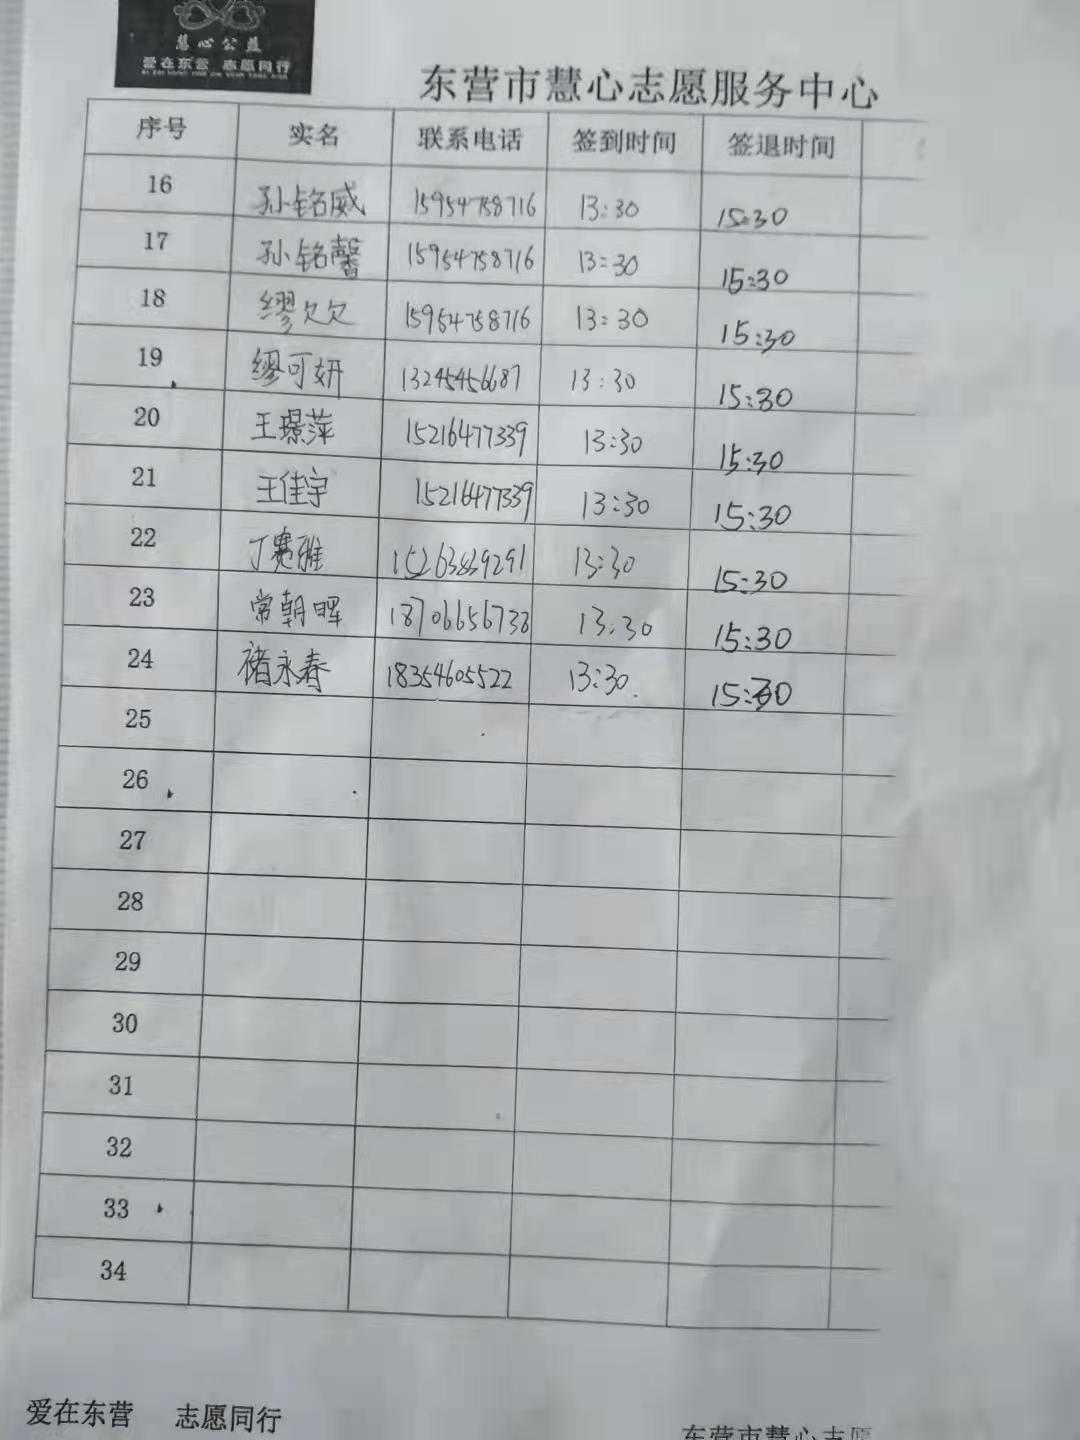 慧心公益
爱在东营 志愿同行
东营市慧心志愿服务中心
序号 实名 联系电话 签到时间 签退时间
16 孙铭威 15954758716 13:30 15:30
17 孙铭馨 15954758716 13:30 15:30
18 缪欠欠 15954758716 13:30 15:30
19 缪可妍 13245456687 13:30 15:30
20 王璟萍 15216477339 13:30 15:30
21 王佳宇 15216477339 13:30 15:30
22 丁赛雅 15263839291 13:30 15:30
23 常朝晖 18706656738 13:30 15:30
24 褚永春 18354605522 13:30 15:30
25
26
27
28
29
30
31
32
33
34
爱在东营 志愿同行
东营市慧心志愿